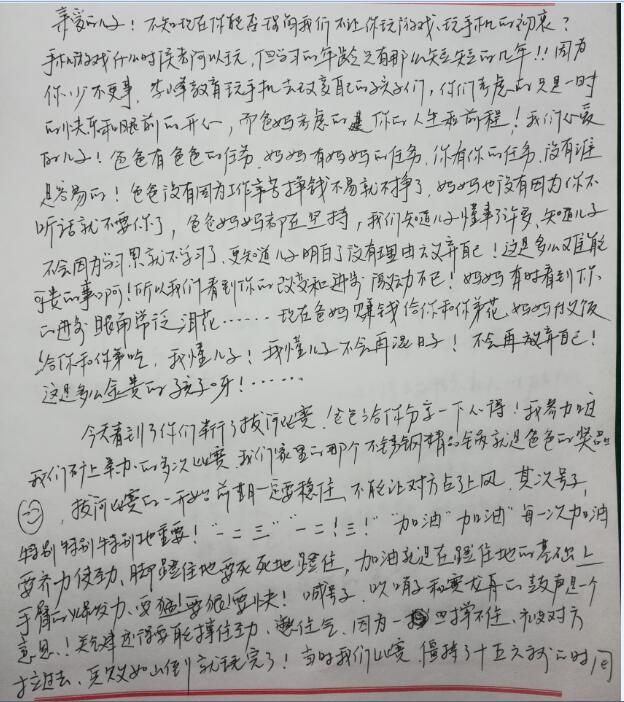 亲爱的儿子！不知现在你能否理解我们不让你玩游戏、玩手机的初衷？
手机游戏什么时候都可以玩，但学习的年龄只有那么短短的几年！！因为
你少不更事，拿教育玩手机去改变自己的孩子们，你们考虑的只是一时
的快乐和眼前的开心，而爸妈考虑的是你的人生和前程！我们心爱
的儿子！爸爸有爸爸的任务，妈妈有妈妈的任务，你有你的任务，没有谁
是容易的！爸爸没有因为工作辛苦挣钱不易就不挣了，妈妈也没有因为你不
听话就不要你了，爸爸妈妈都在坚持，我们知道儿子懂事了许多，知道儿子
不会因为学习累就不学习了，更知道儿子明白了没有理由放弃自己！这是多么难能
可贵的事啊！所以我们看到你的改变和进步激动不已！妈妈有时看到你
的进步眼角常泛泪花……现在爸妈赚钱给你和你弟花，妈妈做饭
给你和你弟吃，我懂儿子！我懂儿子不会再混日子！不会再放弃自己！
这是多么金贵的孩子呀！……
今天看到了你们举行了拔河比赛！爸爸给你分享一下心得！我努力过
我们矿上举办的多次比赛，我们家里的那个不锈钢精品锅就是爸爸的奖品
，拔河比赛的一开始前期一定要稳住，不能让对方占了上风，其次号子，
特别特别特别地重要！“一二三”“一二！三！”“加油”“加油”每一次加油
要齐力使劲、脚蹬住地要死死地蹬住，加油就是在蹬住地的基础上
手臂的爆发力，要猛！要狠！要快！喊号子、吹哨子和赛龙舟的鼓声是一个
意思！关键还得要能撑住劲、憋住气，因为一旦撑不住，被对方
拉过去，兵败如山倒就玩完了！当时我们比赛，僵持了十五六秒的时间